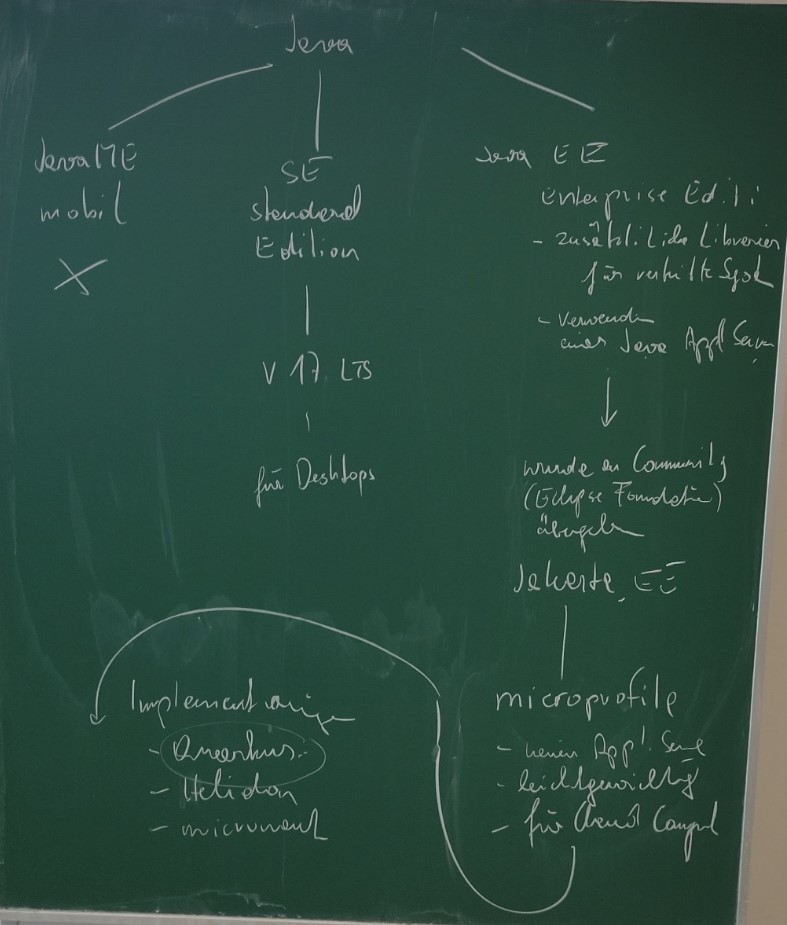 Java
Java ME
mobil
X
SE
standard
Edition
V 17 LTS
für Desktops
Java EE
Enterprise Editi
- zusätzliche Libraries
für verteilte Syst
- Verwend
eines Java Appl Server
wurde an Community
(Eclipse Foundation)
übergeben
Jakarta EE
microprofile
- keinen Appl. Serve
- leichtgewichtig
- für Cloud Comput
Implementierungen
- Quarkus
- Helidon
- micronaut